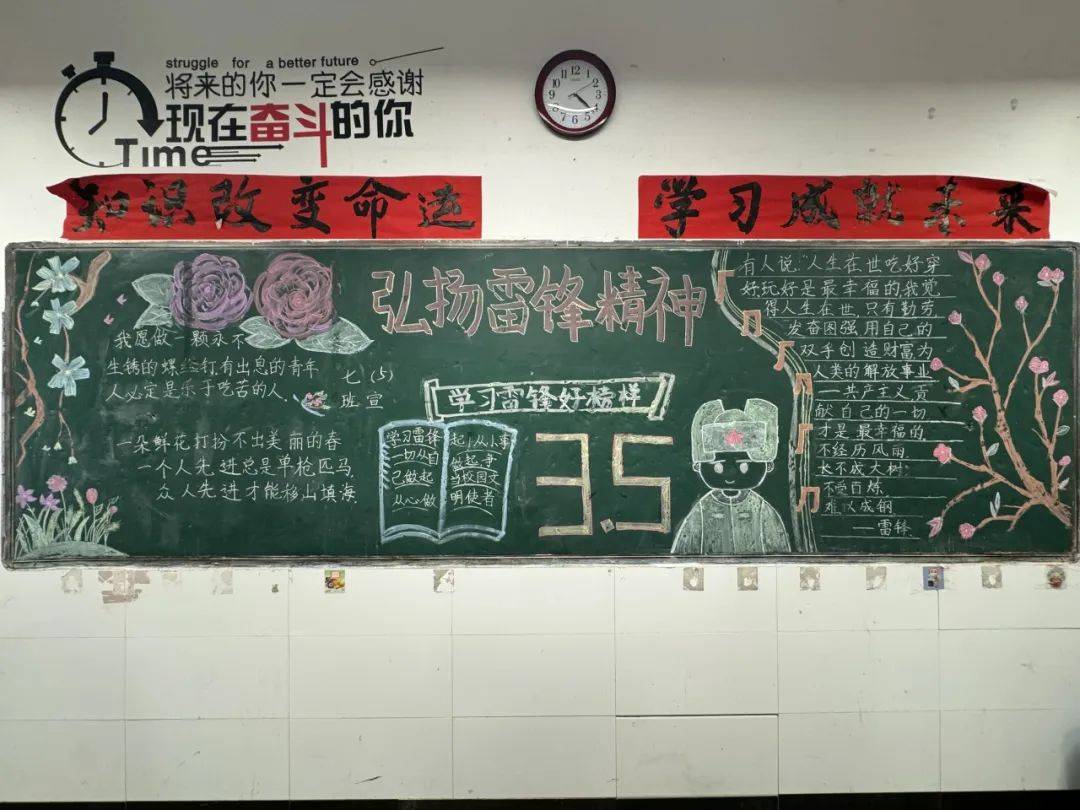 struggle for a better future
将来的你一定会感谢
现在奋斗的你
Time
12
1
2
3
4
5
6
7
8
9
10
11
知识改变命运
学习成就未来
弘扬雷锋精神
我愿做一颗永不
生锈的螺丝钉有出息的青年
人必定是乐于吃苦的人
七(5)
班宣
一朵鲜花打扮不出美丽的春
一个人先进总是单枪匹马
众人先进才能移山填海
学习雷锋好榜样
学习雷锋
一切从自
己做起
从心做
起,从小事
做起争
当校园文
明使者
3.5
有人说:"人生在世吃好穿
好玩好是最幸福的我觉
得人生在世,只有勤劳,
发奋图强用自己的
双手创造财富为
人类的解放事业
一共产主义贡
献自己的一切
才是最幸福的
不经历风雨
长不成大树
不受百炼
难以成钢
——雷锋